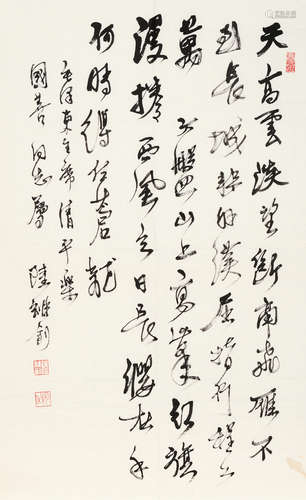 天高雲淡望斷南飛雁不
到長城非好漢屈指行程二
萬六盤山上高峯紅旗
漫捲西風今日長纓在手
何時縛住蒼龍
毛澤東主席清平樂
國善同志屬 陸維釗